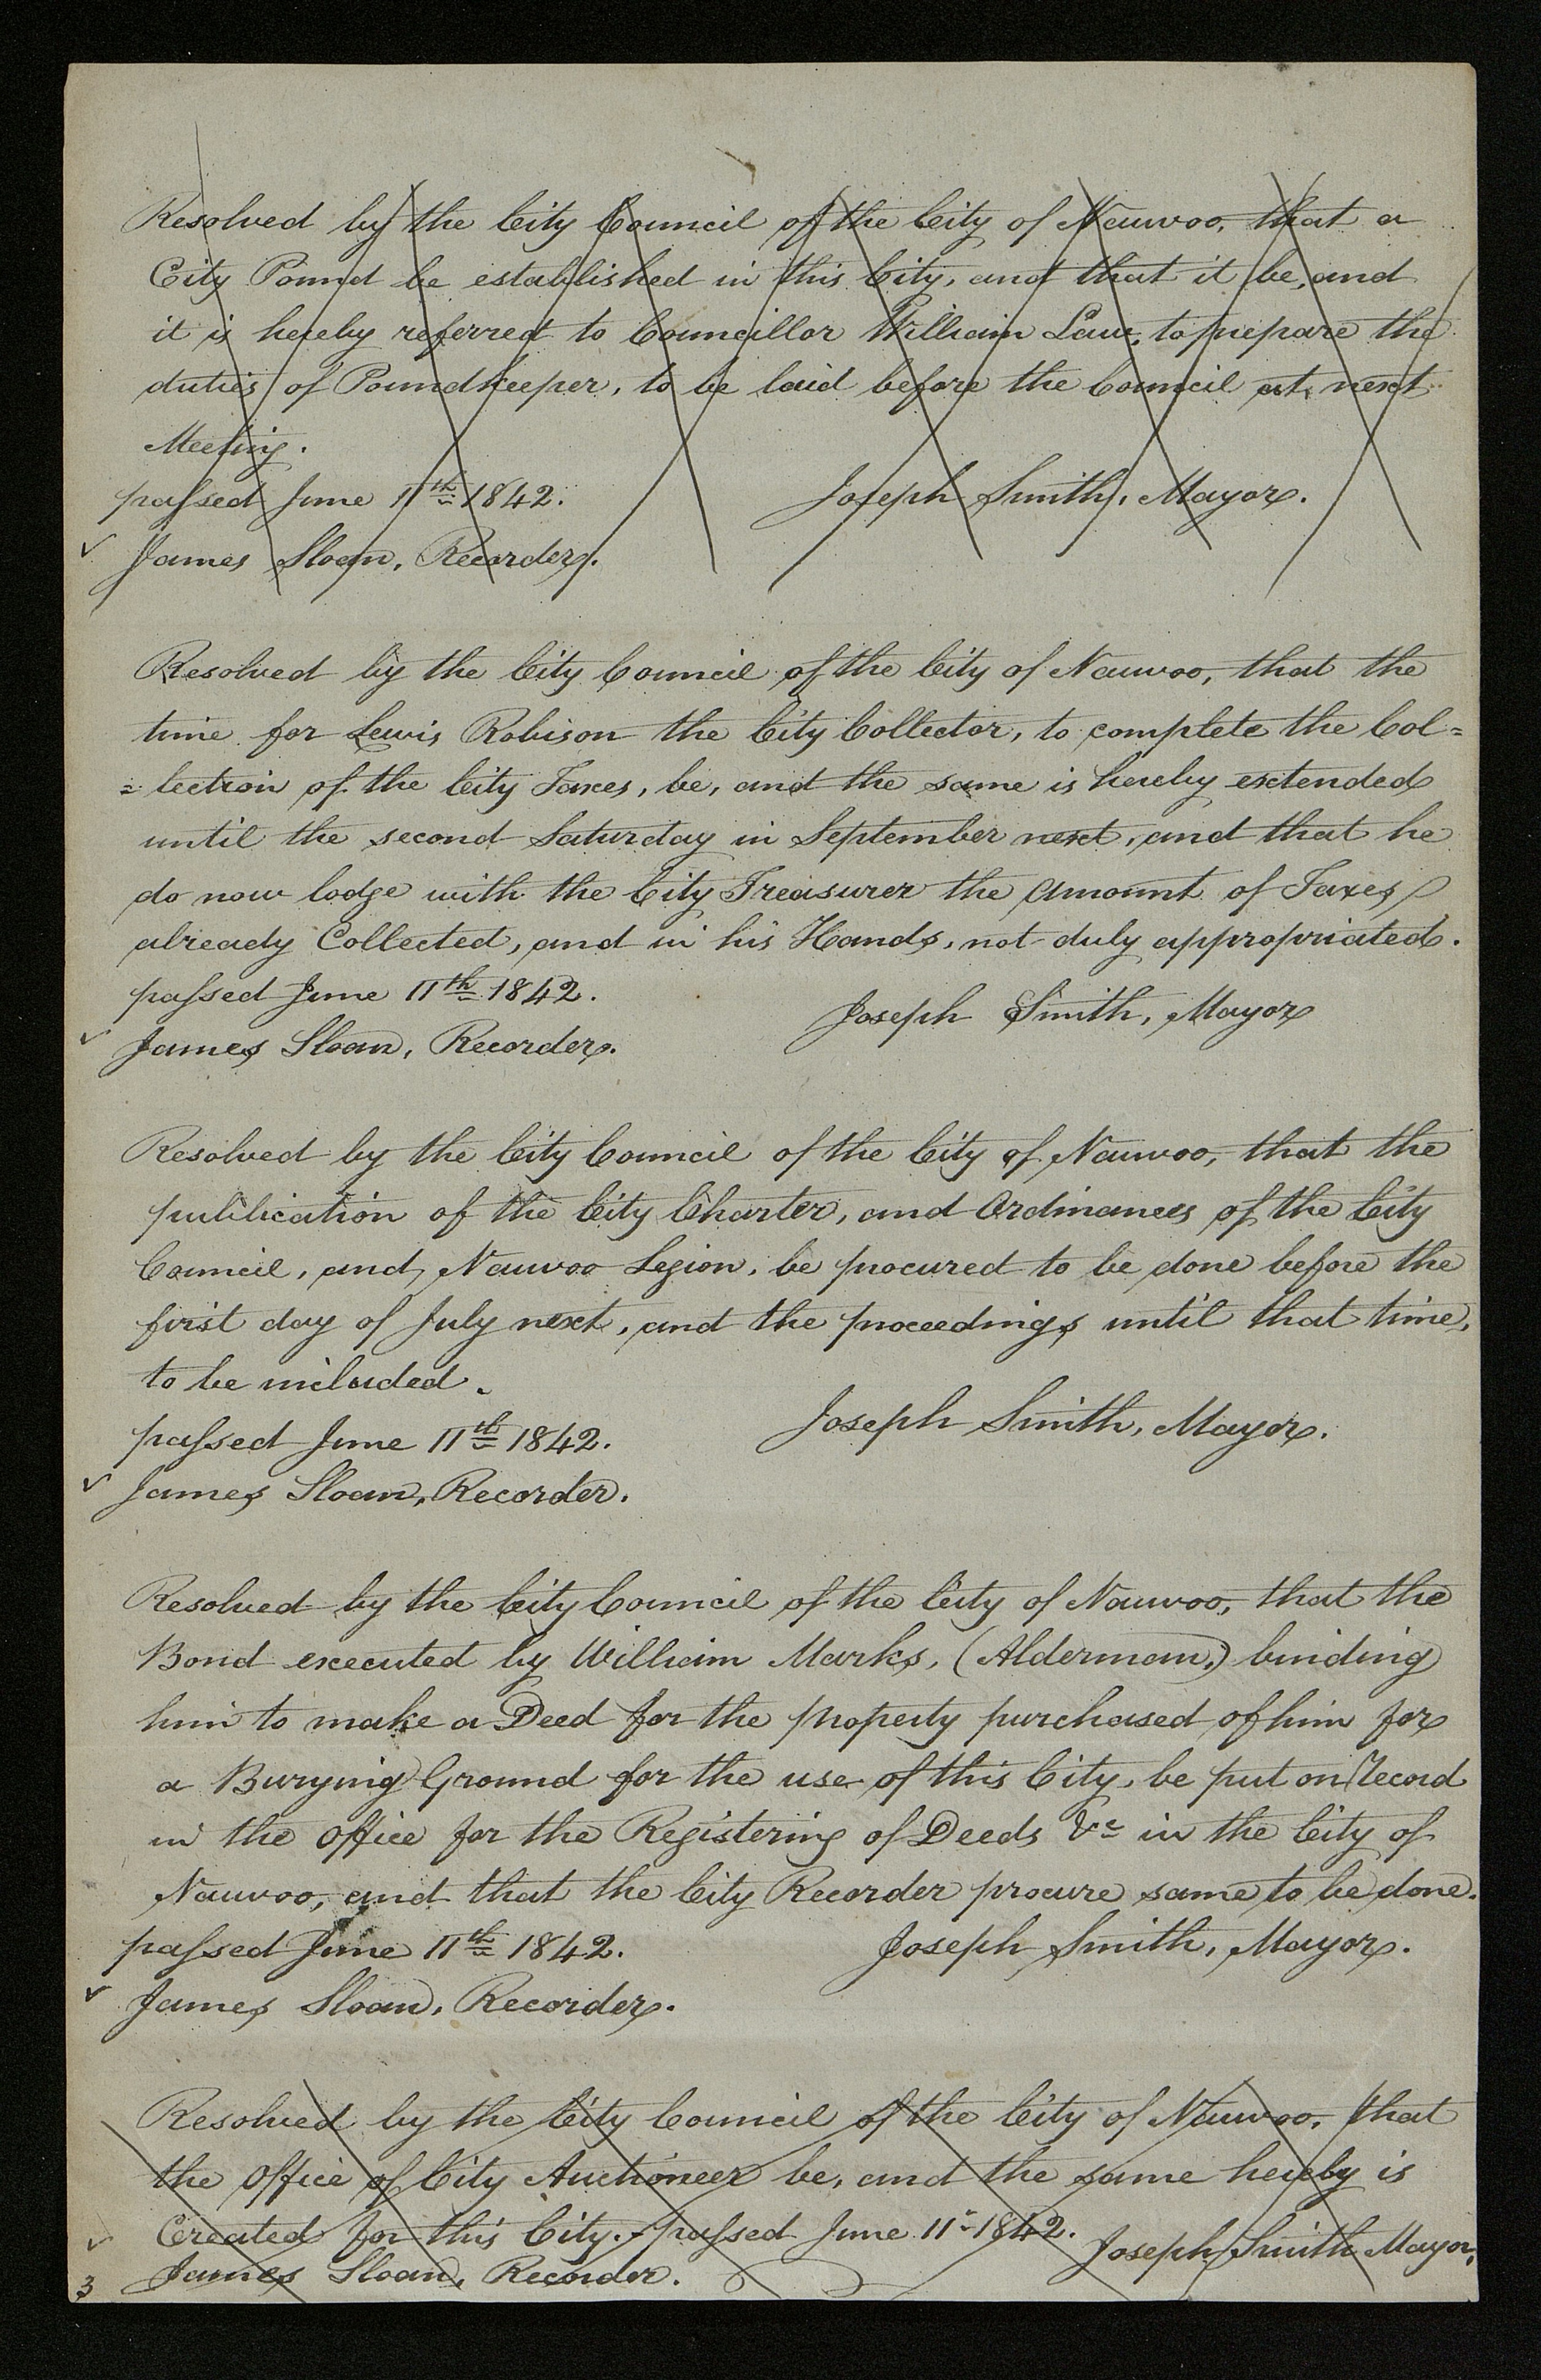 Resolved by the City Council of the City of Nauvoo, that a
City Pound be established in this City, and that it be, and
it is hereby referred to Councillor William Law, to prepare the
duties of Poundkeeper, to be laid before the Council at next
Meeting.
passed June 11th 1842.
Joseph Smith, Mayor.
✓ James Sloan, Recorder.
Resolved by the City Council of the City of Nauvoo, that the
time for Lewis Robison the City Collector, to complete the Col=
=lection of the City Taxes, be, and the same is hereby extended
until the second Saturday in September next, and that he
do now lodge with the City Treasurer the amount of Taxes
already Collected, and in his Hands, not duly appropriated.
passed June 11th 1842.
Joseph Smith, Mayor
✓ James Sloan, Recorder.
Resolved by the City Council of the City of Nauvoo, that the
publication of the City Charter, and Ordinances of the City
Council, and Nauvoo Legion, be procured to be done before the
first day of July next, and the proceedings until that time,
to be included.
Joseph Smith, Mayor.
passed June 11th 1842.
✓ James Sloan, Recorder.
Resolved by the City Council of the City of Nauvoo, that the
Bond executed by William Marks, (Alderman,) binding
him to make a Deed for the property purchased of him for
a Burying Ground for the use of this City, be put on Record
in the office for the Registering of Deeds &c in the City of
Nauvoo, and that the City Recorder procure same to be done.
passed June 11th 1842.
Joseph Smith, Mayor.
✓ James Sloan, Recorder.
Resolved by the City Council of the City of Nauvoo, that
the office of City Auctioneer be, and the same hereby is
✓ Created for this City. - passed June 11- 1842.
Joseph Smith Mayor,
James Sloan, Recorder.
3